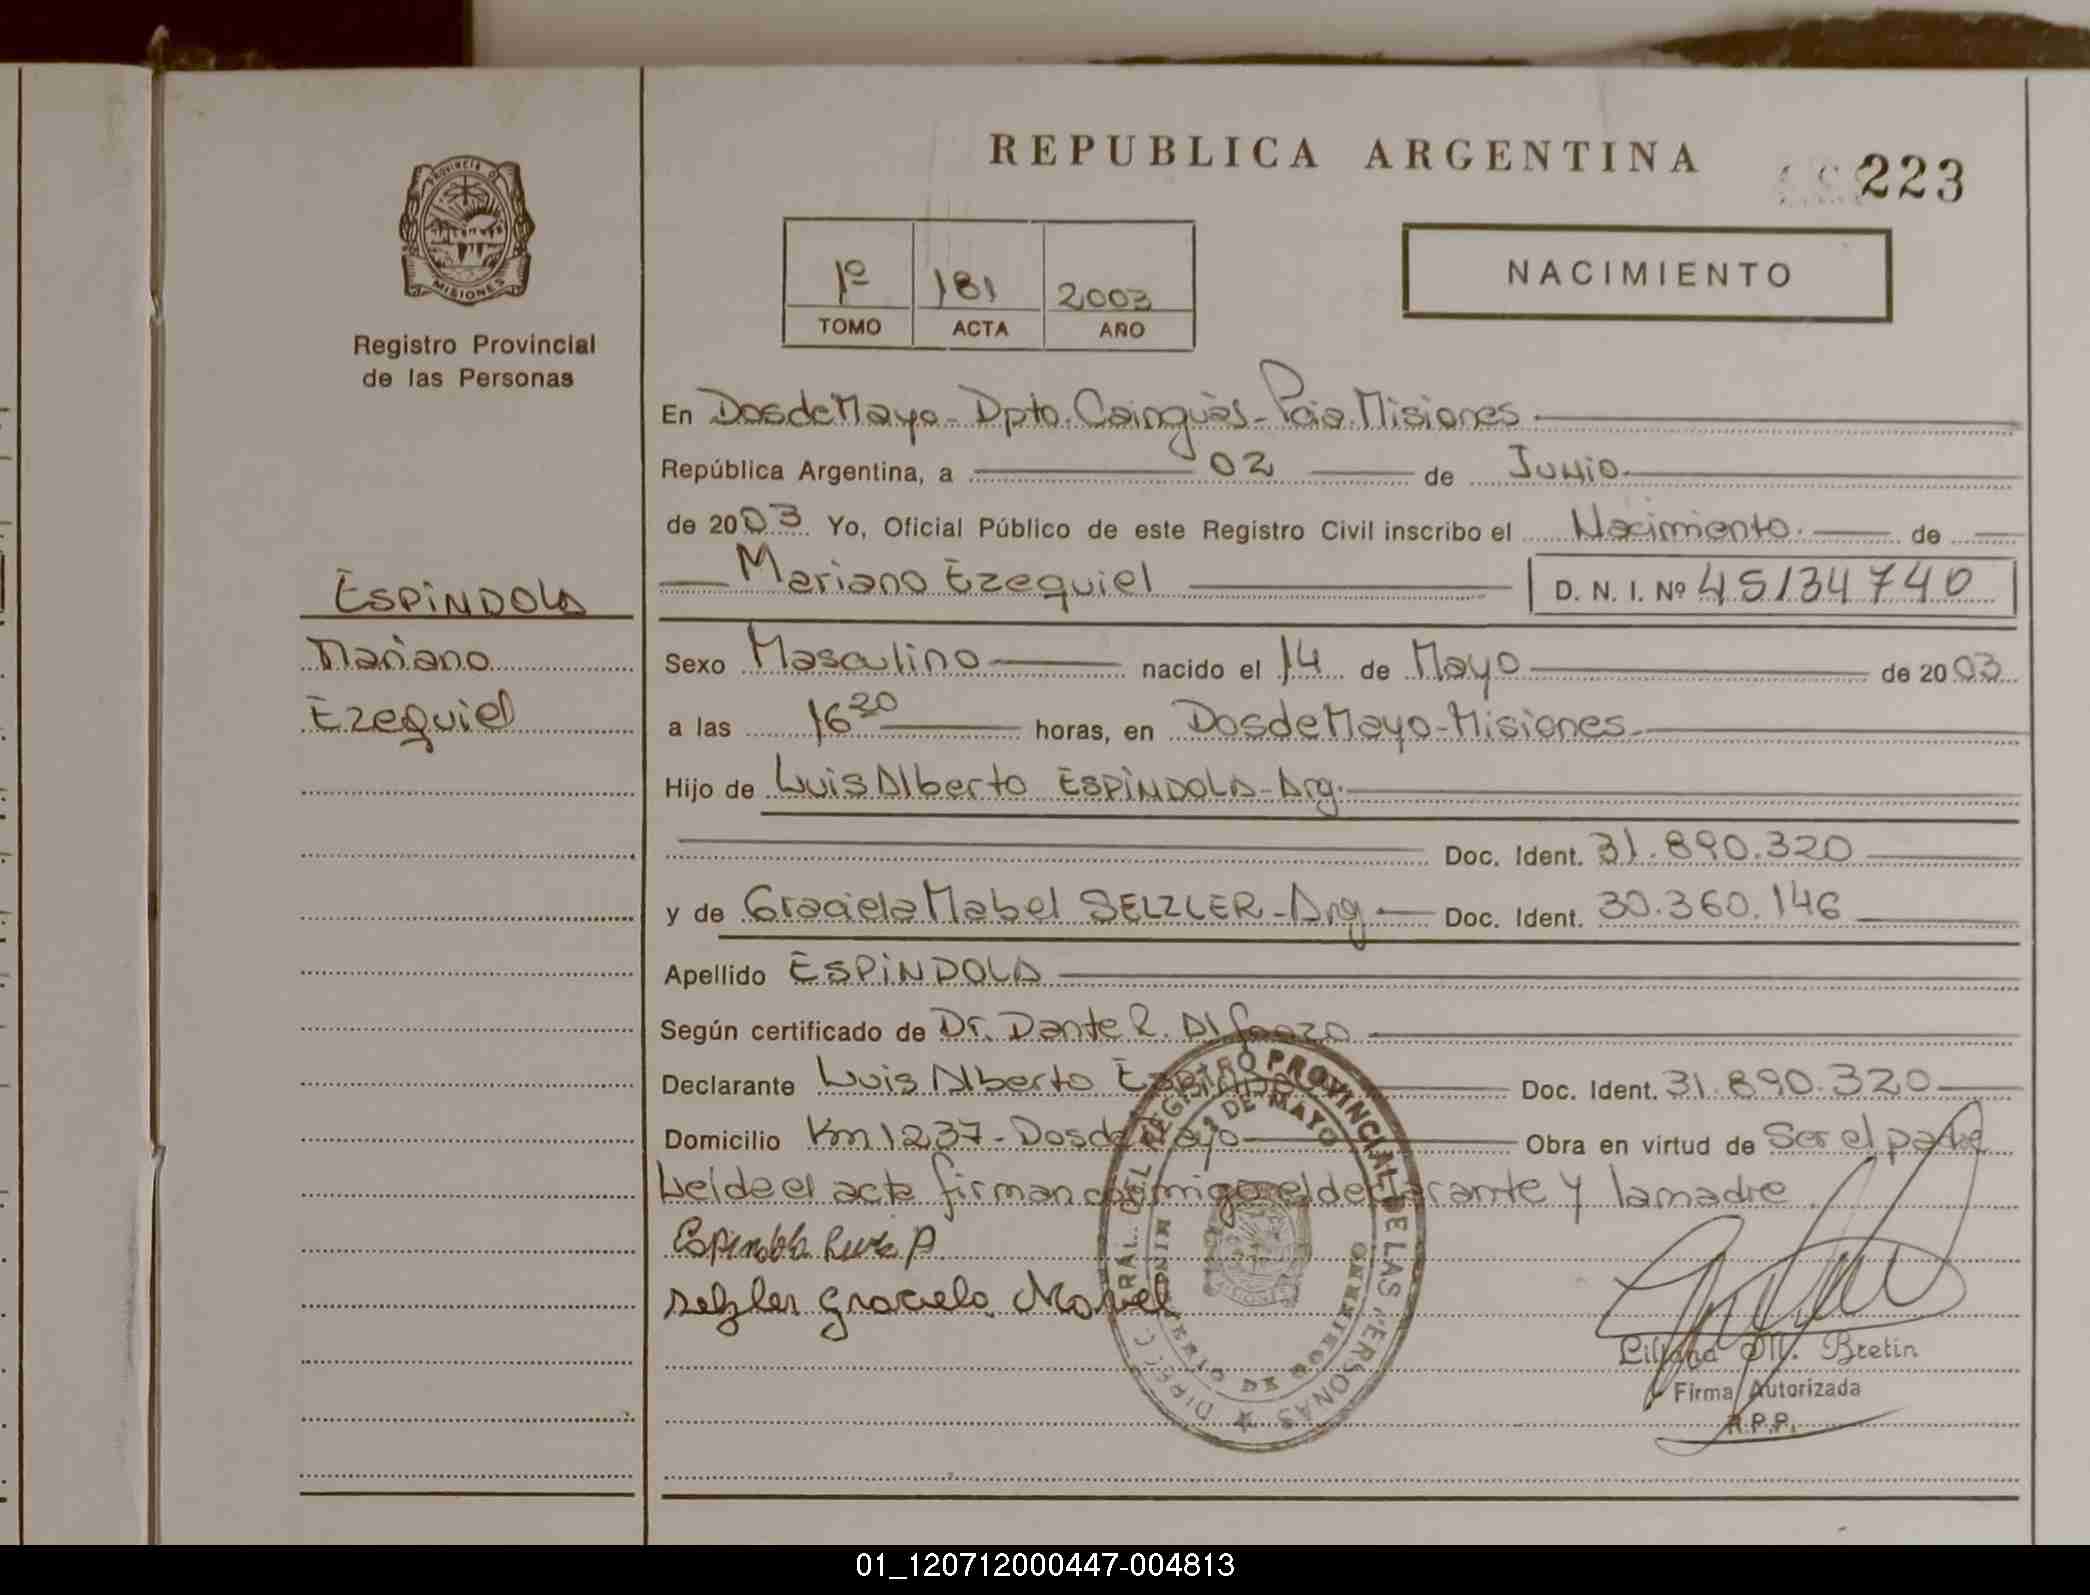 REPUBLICA ARGENTINA
223
PROVINCIA DE
MISIONES
Registro Provincial
de las Personas
1º 181 2003
TOMO ACTA AÑO
NACIMIENTO
En Dos de Mayo - Dpto. Cainguás - Pcia. Misiones
República Argentina, a 02 de Junio
de 2003 Yo, Oficial Público de este Registro Civil inscribo el Nacimiento de
Mariano Ezequiel D. N. I. Nº 45134740
ESPINDOLA
Mariano
Ezequiel
Sexo Masculino nacido el 14 de Mayo de 2003
a las 16 20 horas, en Dos de Mayo - Misiones
Hijo de Luis Alberto ESPINDOLA - Arg.
Doc. Ident. 31.890.320
y de Graciela Mabel SELZLER - Arg. Doc. Ident. 30.360.146
Apellido ESPINDOLA
Según certificado de Dr. Dante R. Alfonzo
Declarante Luis Alberto Espindola Doc. Ident. 31.890.320
Domicilio Km 1237 - Dos de Mayo Obra en virtud de Ser el padre
Leida el acta firman conmigo el declarante y la madre.
Espindola Luis A
selzler graciela Mabel
REGISTRO PROVINCIAL DE LAS PERSONAS
DE MAYO
Liliana M. Bretin
Firma Autorizada
R.P.P.
01_120712000447-004813